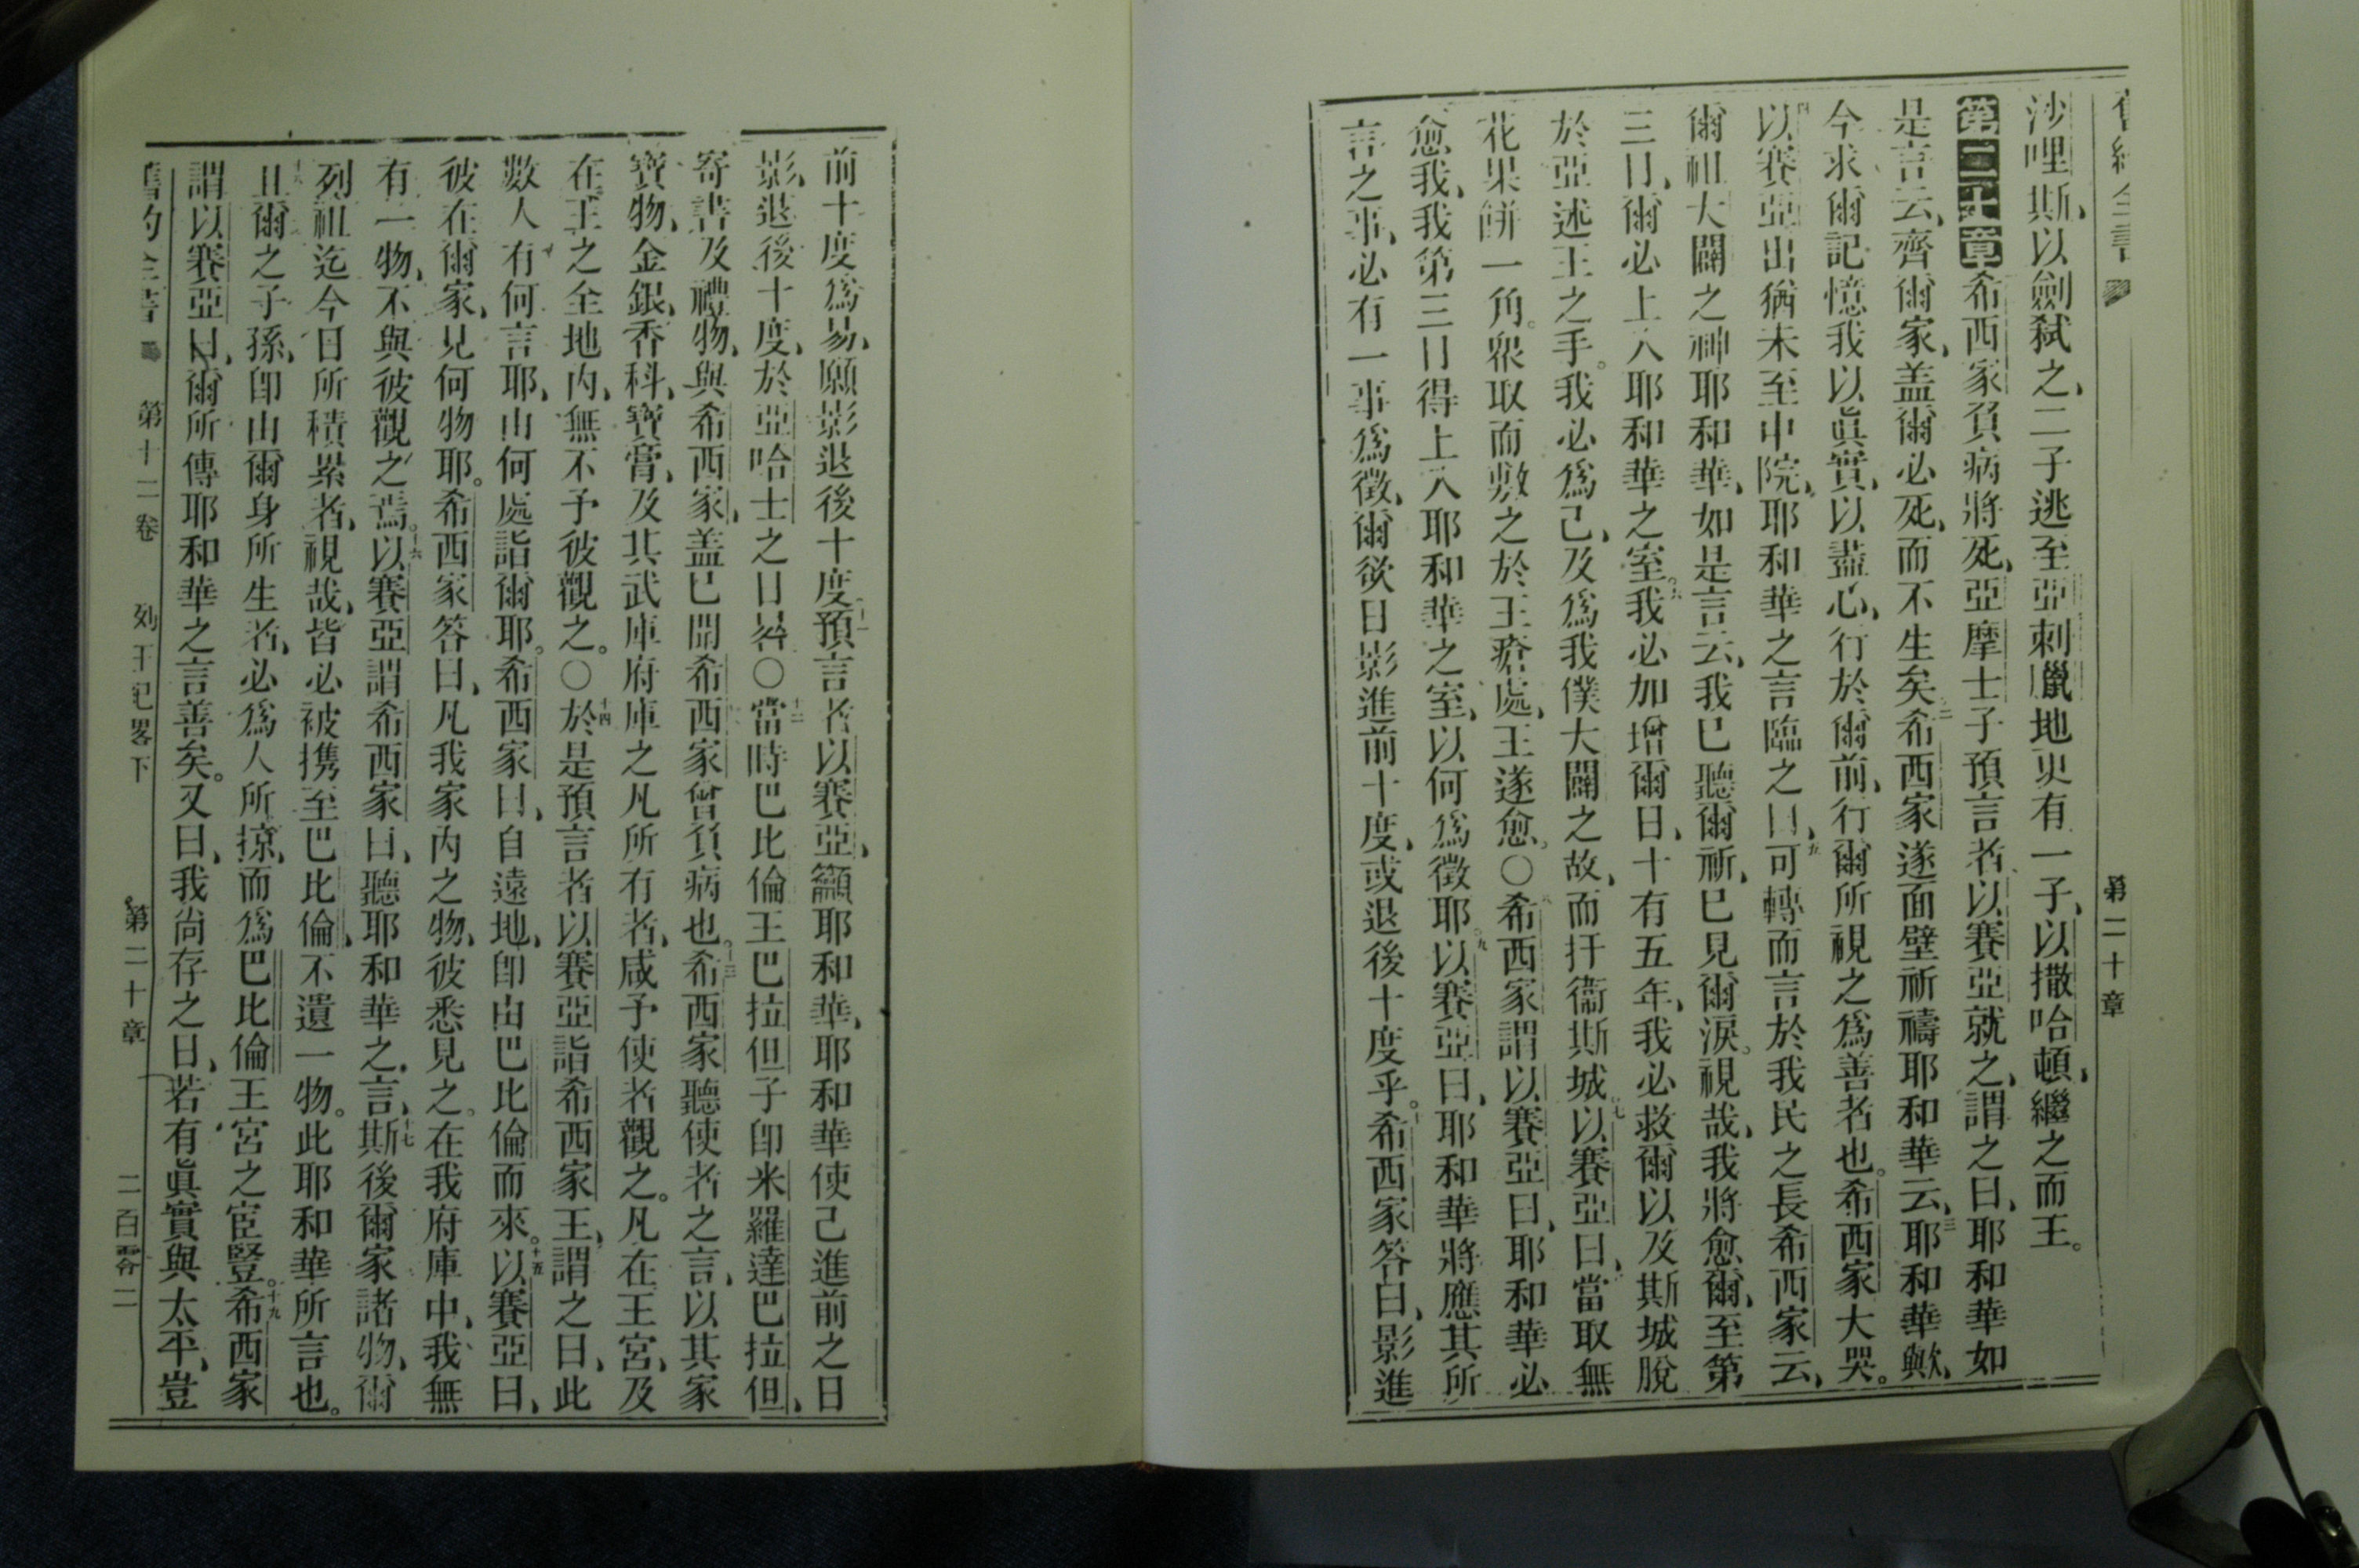 舊約全書
第二十章
沙哩斯、以劍弒之、二子逃至亞刺臘地更有一子、以撒哈頓、繼之而王。
第二十章希西家負病將死、亞摩士子預言者、以賽亞就之、謂之曰、耶和華如
是言云、齊爾家、盖爾必死、而不生矣二希西家遂面壁祈禱耶和華云、三耶和華歟、
今求爾記憶我以眞實、以盡心、行於爾前、行爾所視之爲善者也。希西家大哭。
四以賽亞出猶未至中院、耶和華之言臨之曰、五可轉而言於我民之長希西家云、
爾祖大闢之神耶和華、如是言云、我已聽爾祈、已見爾淚。視哉、我將愈爾、至第
三日、爾必上入耶和華之室。六我必加增爾日、十有五年、我必救爾以及斯城脫
於亞述王之手。我必爲己、及爲我僕大闢之故、而扞衞斯城。七以賽亞曰、當取無
花果餅一角。眾取而敷之於王瘡處、王遂愈。○八希西家謂以賽亞曰、耶和華必
愈我、我第三日得上入耶和華之室、以何爲徵耶。九以賽亞曰、耶和華將應其所
言之事、必有一事爲徵、爾欲日影進前十度、或退後十度乎。十希西家答曰、影進
前十度爲易、願影退後十度十一預言者以賽亞、籲耶和華、耶和華使已進前之日
影、退後十度、於亞哈士之日晷○十二當時巴比倫王巴拉但子卽米羅達巴拉但、
寄書及禮物、與希西家、盖已聞希西家曾負病也。十三希西家聽使者之言、以其家
寶物、金銀、香科、寶膏、及其武庫府庫之凡所有者、咸予使者觀之。凡在王宮、及
在王之全地內、無不予彼觀之。○十四於是預言者以賽亞詣希西家王、謂之曰、此
數人有何言耶、由何處詣爾耶。希西家曰、自遠地、卽由巴比倫而來。十五以賽亞曰、
彼在爾家、見何物耶。希西家答曰、凡我家內之物、彼悉見之。在我府庫中、我無
有一物、不與彼觀之焉。十六以賽亞謂希西家曰、聽耶和華之言、十七斯後爾家諸物、爾
列祖迄今日所積累者、視哉、皆必被携至巴比倫、不遺一物。此耶和華所言也。
十八且爾之子孫、卽由爾身所生者、必爲人所掠、而爲巴比倫王宮之宦豎。十九希西家
謂以賽亞曰、爾所傳耶和華之言善矣。又曰、我尙存之日、若有眞實與太平、豈
舊約全書 第十二卷 列王紀畧下 第二十章 二百零二